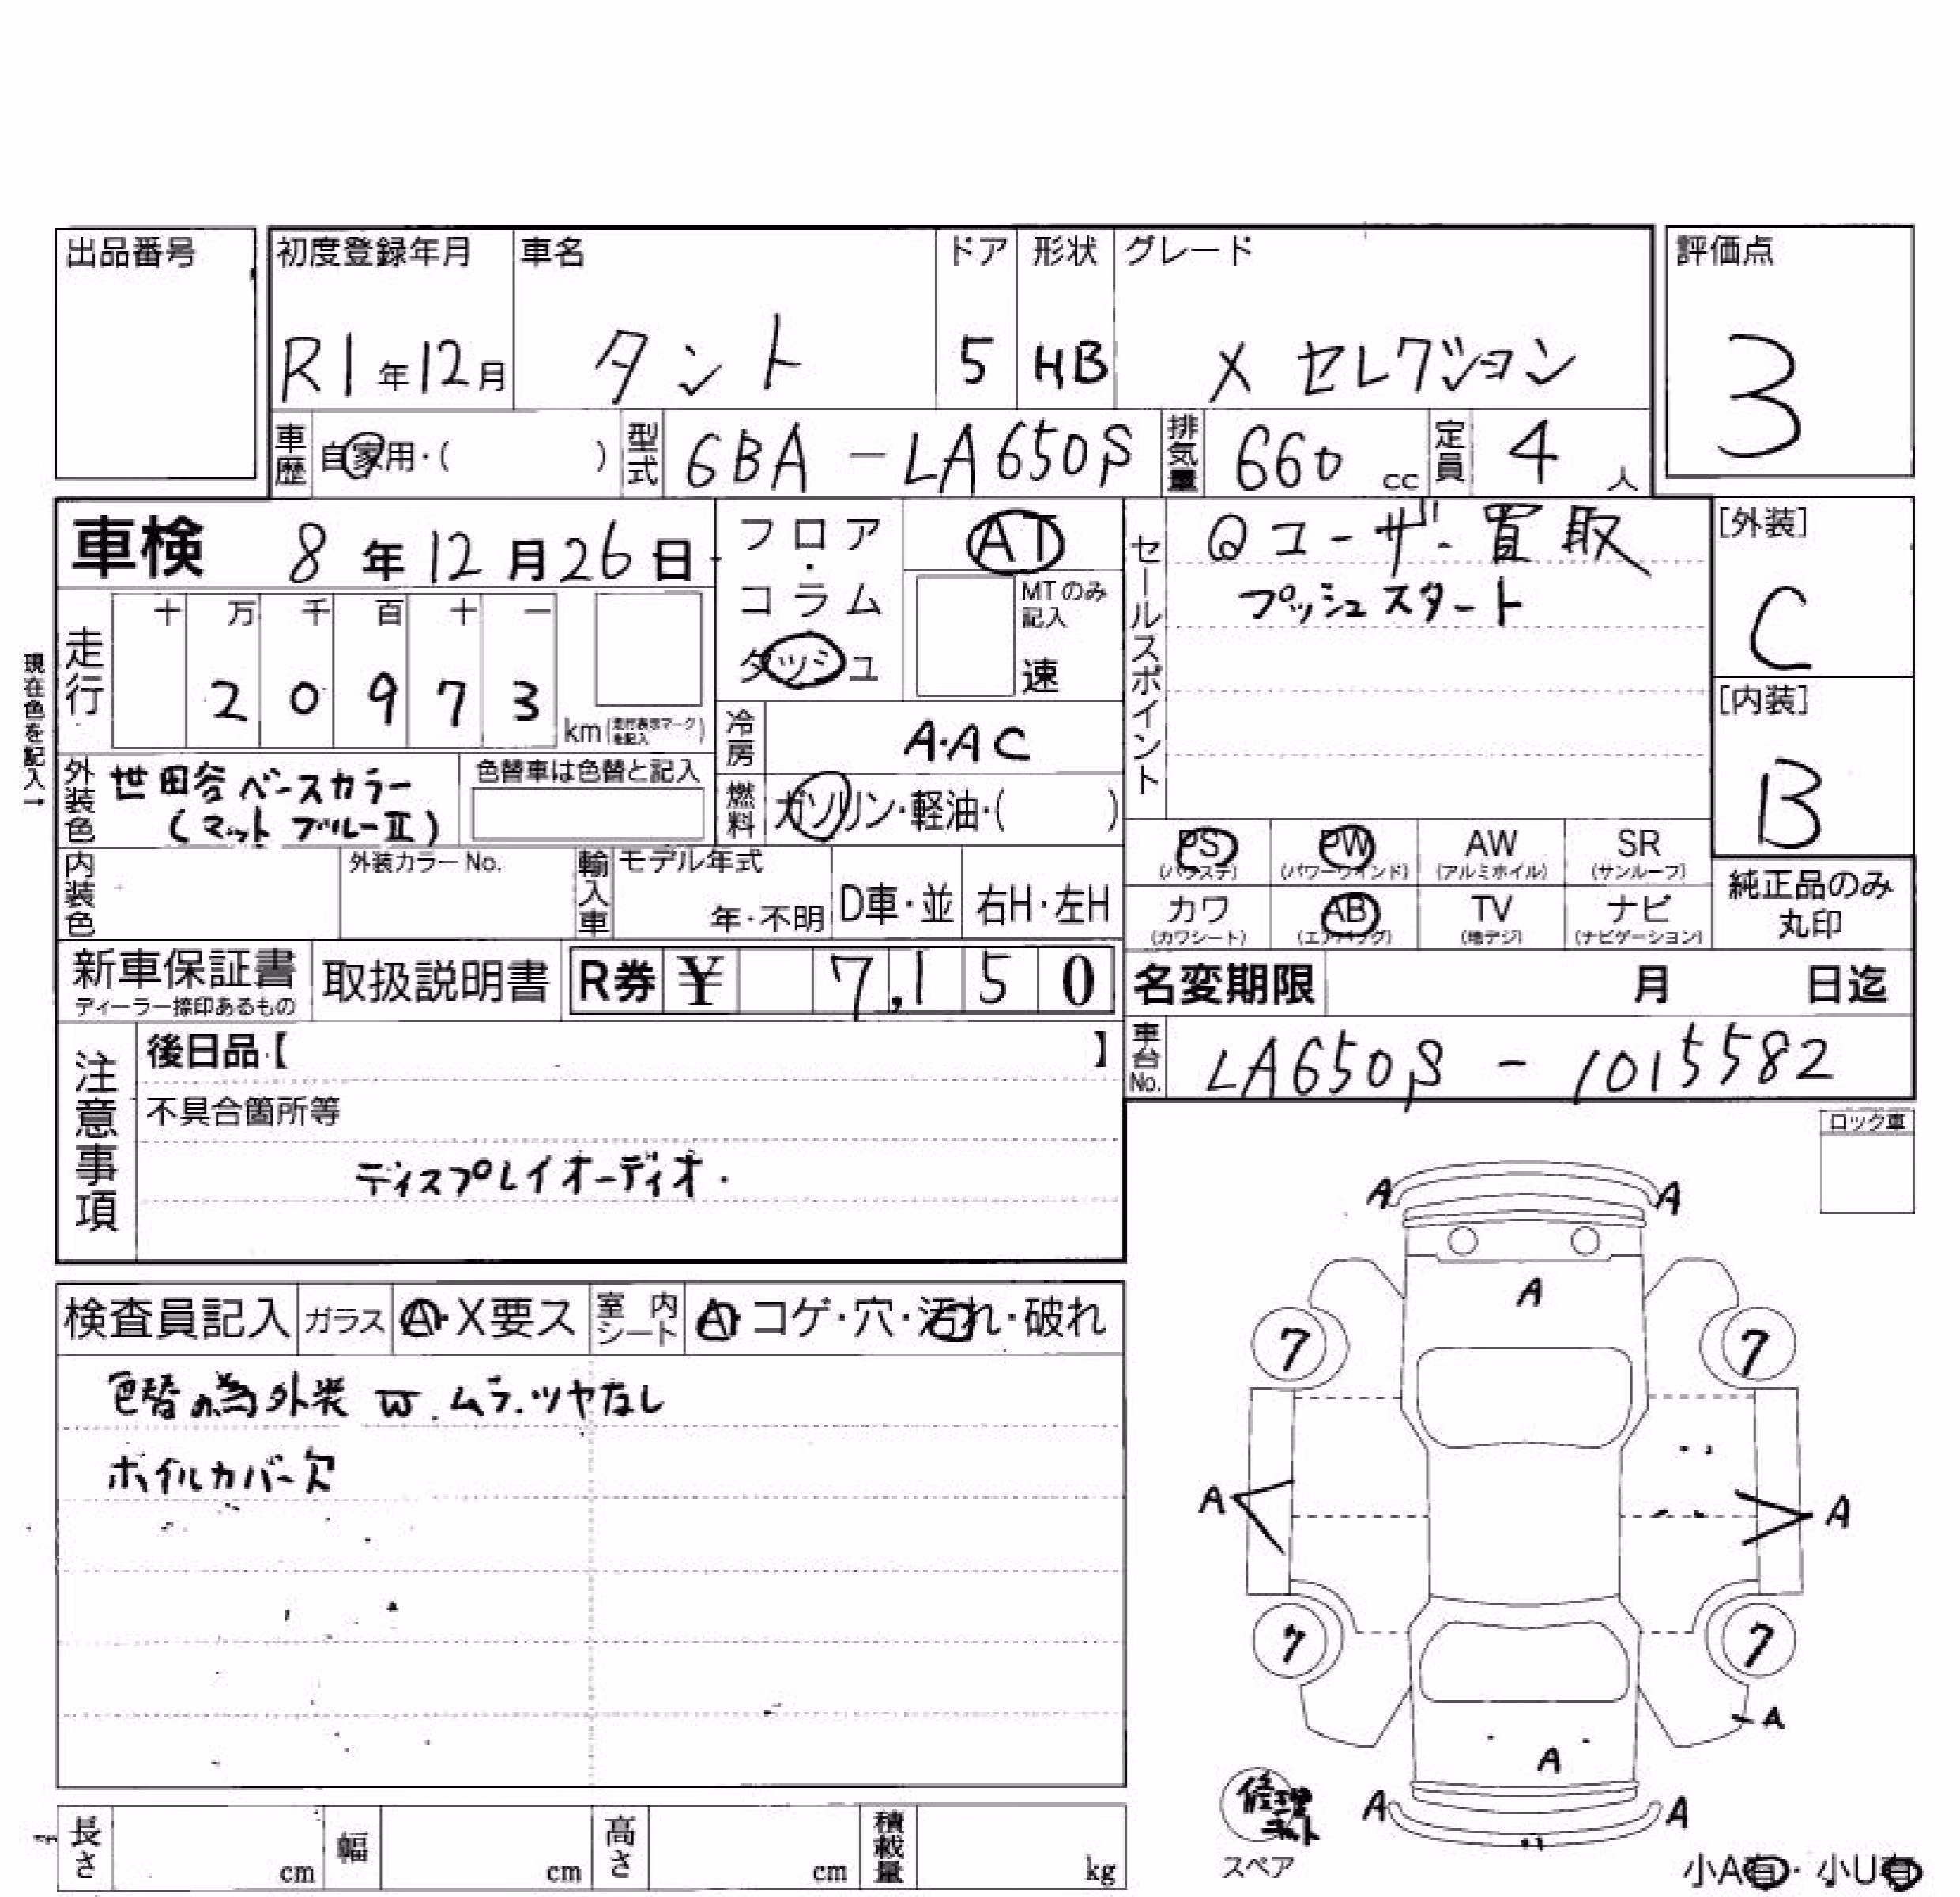 出品番号
初度登録年月 車名 ドア 形状 グレード 評価点
R1年12月 タント 5 HB X セレクション 3
車歴 自家用・( ) 型式 6BA-LA650S 排気量 660cc 定員 4人
車検 8年12月26日
フロア・コラム ダッシュ
AT
MTのみ記入
速
セールスポイント
ユーザー買取
プッシュスタート
[外装]
C
[内装]
B
現在色を記入→
走行 十 万 千 百 十 一
2 0 9 7 3 km(走行表示マークを記入)
冷房 A・AC
外装色 世田谷ベースカラー
(マットブルーII)
色替車は色替と記入
燃料 ガソリン・軽油・( )
PS PW AW SR
(パワステ) (パワーウインド) (アルミホイル) (サンルーフ)
カワ AB TV ナビ
(カワシート) (エアバッグ) (地デジ) (ナビゲーション)
純正品のみ
丸印
内装色 外装カラーNo. 輸入車 モデル年式
年・不明 D車・並 右H・左H
新車保証書 取扱説明書 R券 ¥ 7,150
ディーラー捺印あるもの
名変期限 月 日迄
車台No. LA650S - 1015582
注意事項
後日品【 】
不具合箇所等
ディスプレイオーディオ.
ロック車
検査員記入 ガラス A・X要ス 室内シート A・コゲ・穴・汚れ・破れ
色替の為外装 W.ムラ.ツヤなし
ホイルカバー欠
A A
A
7 7
A A
7 7
A
A
A A
修理キット
スペア
小A有・小U有
長さ cm 幅 cm 高さ cm 積載量 kg